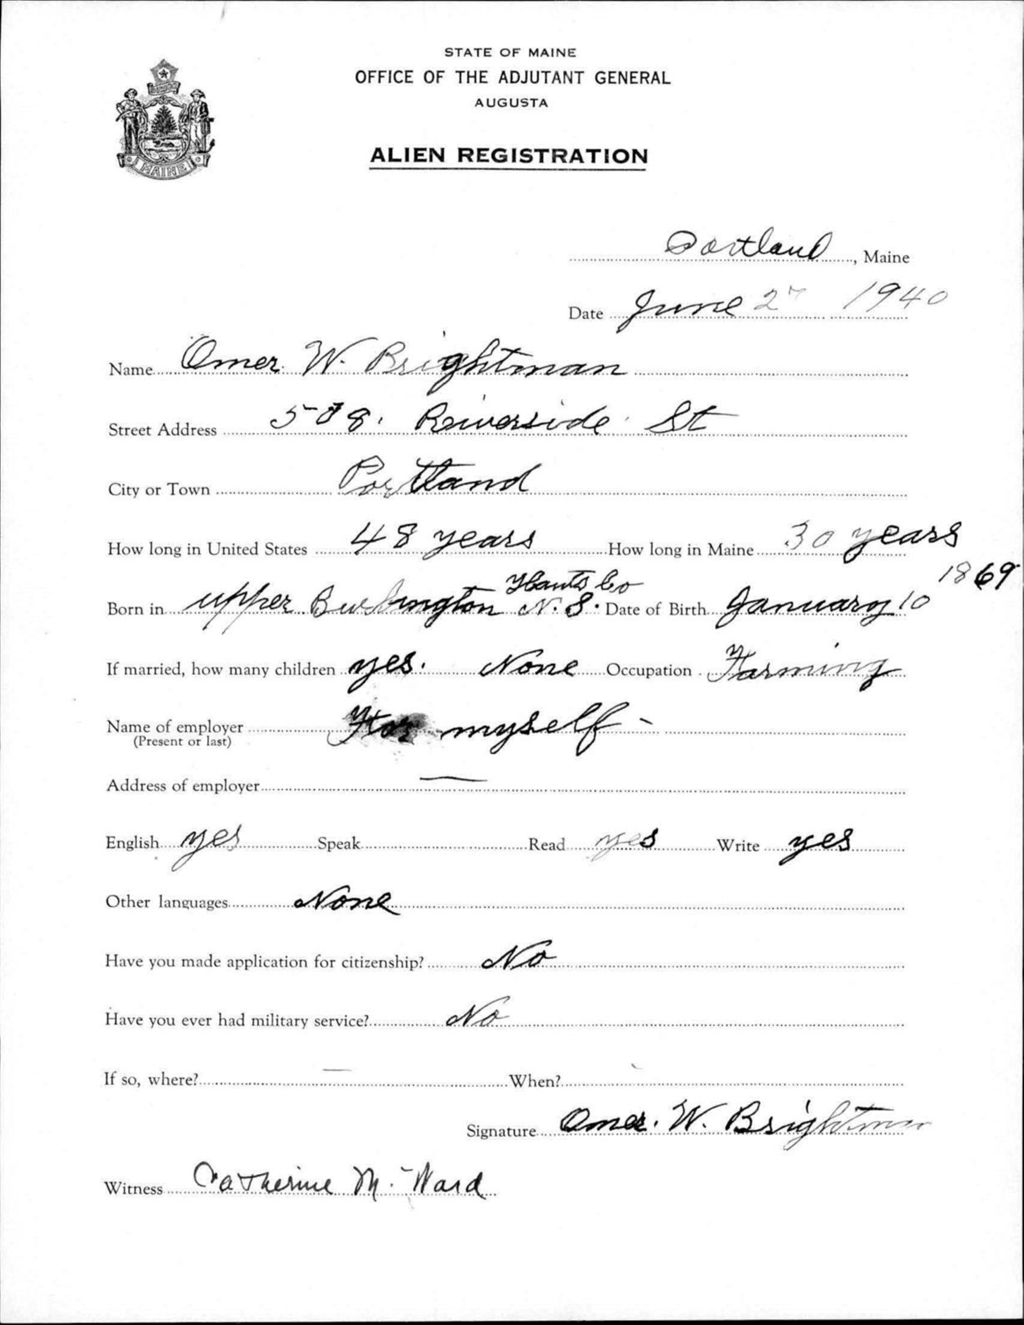 STATE OF MAINE
OFFICE OF THE ADJUTANT GENERAL
AUGUSTA
ALIEN REGISTRATION
MAINE
Portland, Maine
Date June 27 1940
Name Omer W. Brightman
Street Address Riverside St
City or Town Portland
How long in United States 48 years How long in Maine 30 years
Hants Co 1869
Born in upper Burlington N.S. Date of Birth January 10
If married, how many children yes. None Occupation Farming
Name of employer For myself -
(Present or last)
Address of employer —
English yes Speak Read yes Write yes
Other languages None
Have you made application for citizenship? No
Have you ever had military service? No
If so, where? — When?
Signature Omer. W. Brightman
Witness Catherine M. Ward